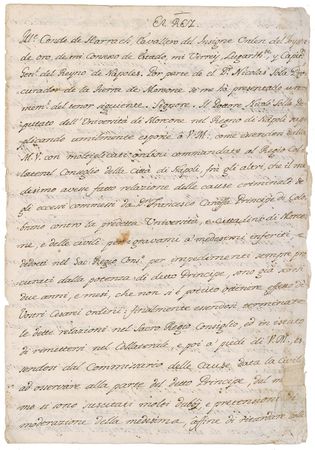 EL REY.
Ill.e Conde de Harrach, Cavallero del Insigne Orden del
de oro, de mi Consejo de Estado, mi Virrey, Lugarth.te, y Capp.n
Gen.l del Reyno de Napoles. Por parte de el D.r Nicolas Solla Pro-
curador de la tierra de Morcone se me ha presentado un
mem.l del tenor siguiente. Signore. Il Dottore Nicolò Solla De-
putato dell'Università di Morcone nel Regno di Napoli sup-
plicando umilmente espone à V.M. come essendosi dalla
M.V. con moltiplicati ordini commandato al Regio Col-
lateral Consiglio della Città di Napoli frà gli altri, che il me-
desimo avesse fatto relazione delle cause criminali de
gli eccessi commessi da Francesco Carafa Principe di Colo-
brano contro la predetta Università, e Cittadini di Morco-
ne, e delle civili per i gravami a' medesimi inferiti, e
dedotti nel Sac. Regio Con.o per impedimenti sempre pro-
curati dalla potenza di detto Principe, sono già scorsi
due anni, e mesi, che non si è potuto ottenere effetto de'
Vostri Cesarei ordini; finalmente essendosi terminate
le dette relazioni nel Sacro Regio Consiglio, ed in istato
di rimettersi nel Collaterale, e poi à piedi di V.M., es-
sendosi dal Commissario delle Cause, data la Civile
ad osservare alla parte del detto Principe, dal mede-
mo si sono suscitati molti dubij, e pretensioni di
moderazione della medesima, affine di ritardare